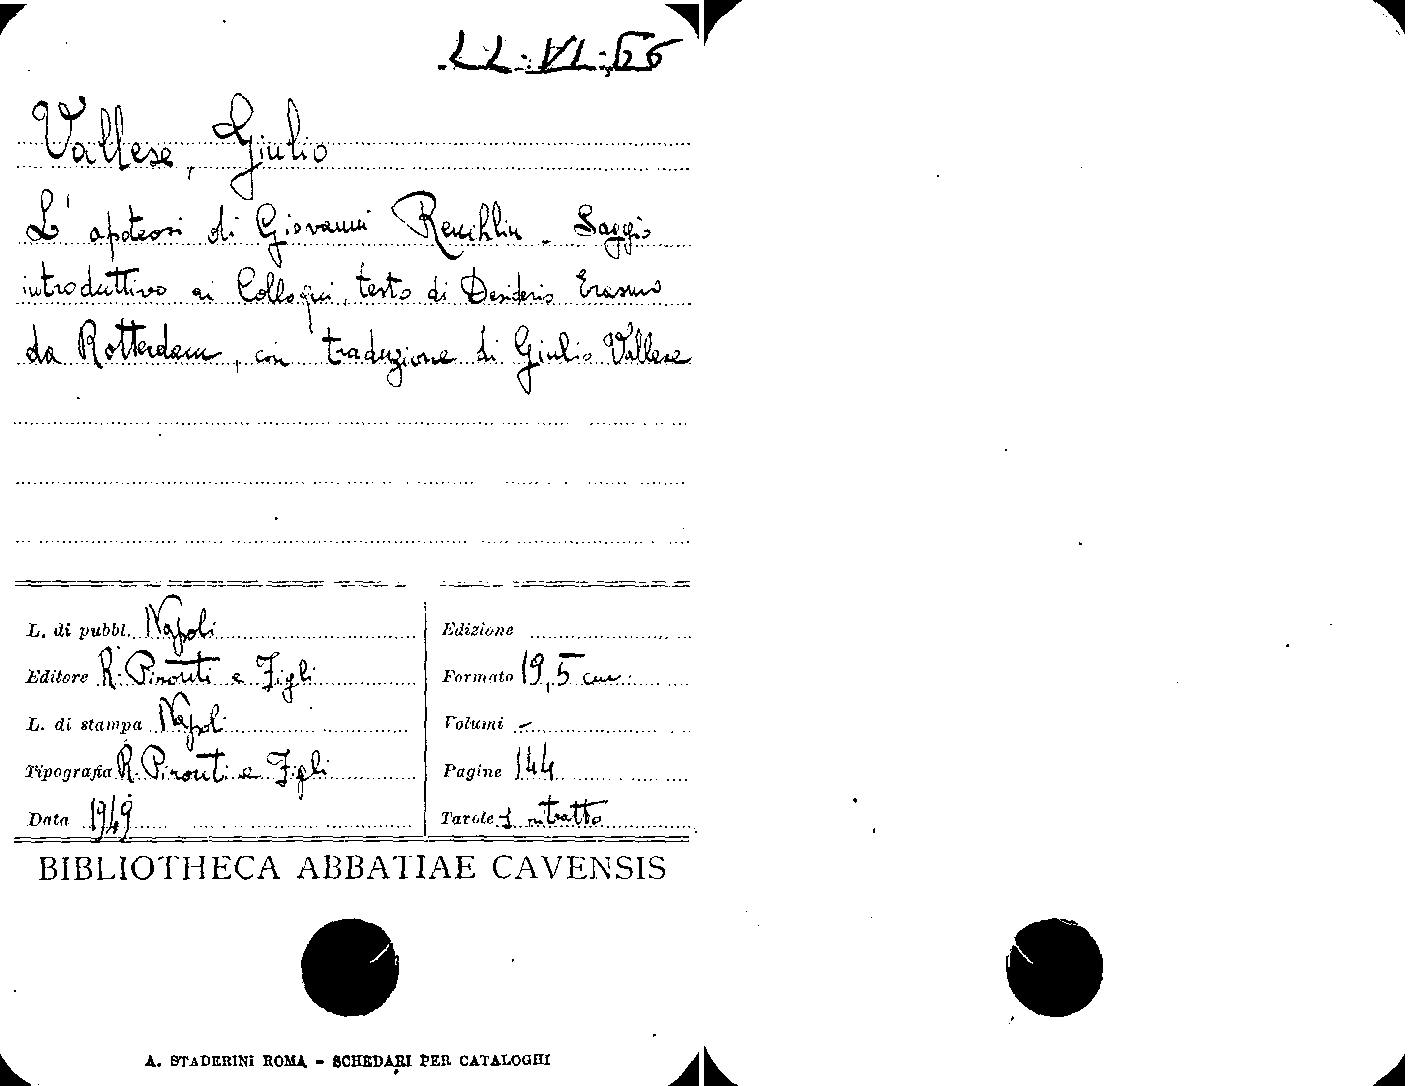 LL.VI.56
Vallese, Giulio
L'apoteosi di Giovanni Reuchlin - Saggio
introduttivo ai Colloqui, testo di Desiderio Erasmo
da Rotterdam, con traduzione di Giulio Vallese
L. di pubbl. Napoli
Editore R. Pironti e Figli
L. di stampa Napoli
Tipografia R. Pironti e Figli
Data 1949
Edizione
Formato 19,5 cm.
Volumi -
Pagine 144
Tavole 1 ritratto
BIBLIOTHECA ABBATIAE CAVENSIS
A. STADERINI ROMA - SCHEDARI PER CATALOGHI